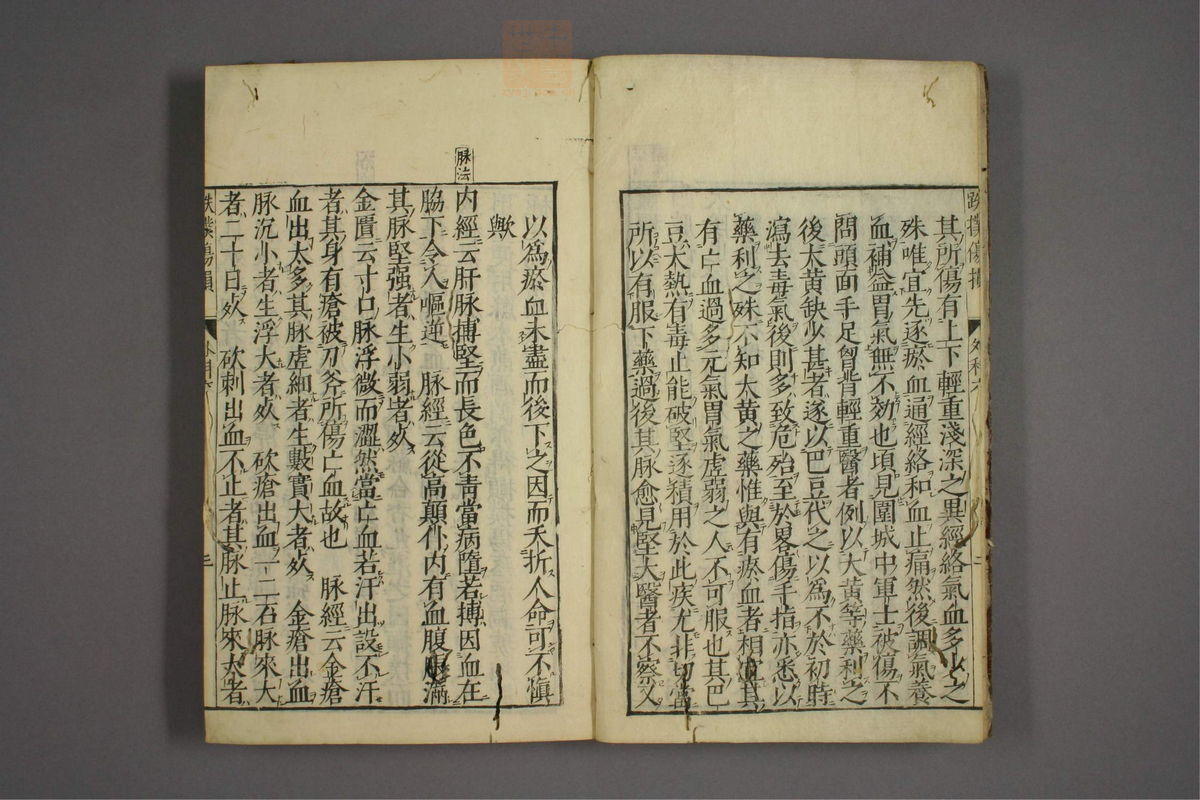 跌撲傷損
其所傷有上下輕重淺深之異經絡氣血多少之
殊唯宜先逐瘀血通經絡和血止痛然後調氣養
血補益胃氣無不効也頃見圍城中軍士被傷不
問頭面手足胷背輕重醫者例以大黃等藥利之
後大黃缺少甚者遂以巴豆代之以為不於初時
瀉去毒氣後則多致危殆至於畧傷手指亦悉以
藥利之殊不知大黃之藥惟與有瘀血者相宜其
有亡血過多元氣胃氣虛弱之人不可服也其巴
豆大熱有毒止能破堅逐積用於此疾尤非切當
所以有服下藥過後其脉愈見堅大醫者不察又
以為瘀血未盡而後下之因而夭折人命可不慎
歟
脉法
内經云肝脉搏堅而長色不青當病墮若搏因血在
脇下令人嘔逆 脉經云從高顛仆内有血腹脹滿
其脉堅强者生小弱者死
金匱云寸口脉浮微而澀然當亡血若汗出設不汗
者其身有瘡被刀斧所傷亡血故也 脉經云金瘡
血出太多其脉虛細者生數實大者死 金瘡出血
脉沉小者生浮大者死 砍瘡出血一二石脉來大
者二十日死 砍刺出血不止者其脉止脉來大者
跌撲傷損